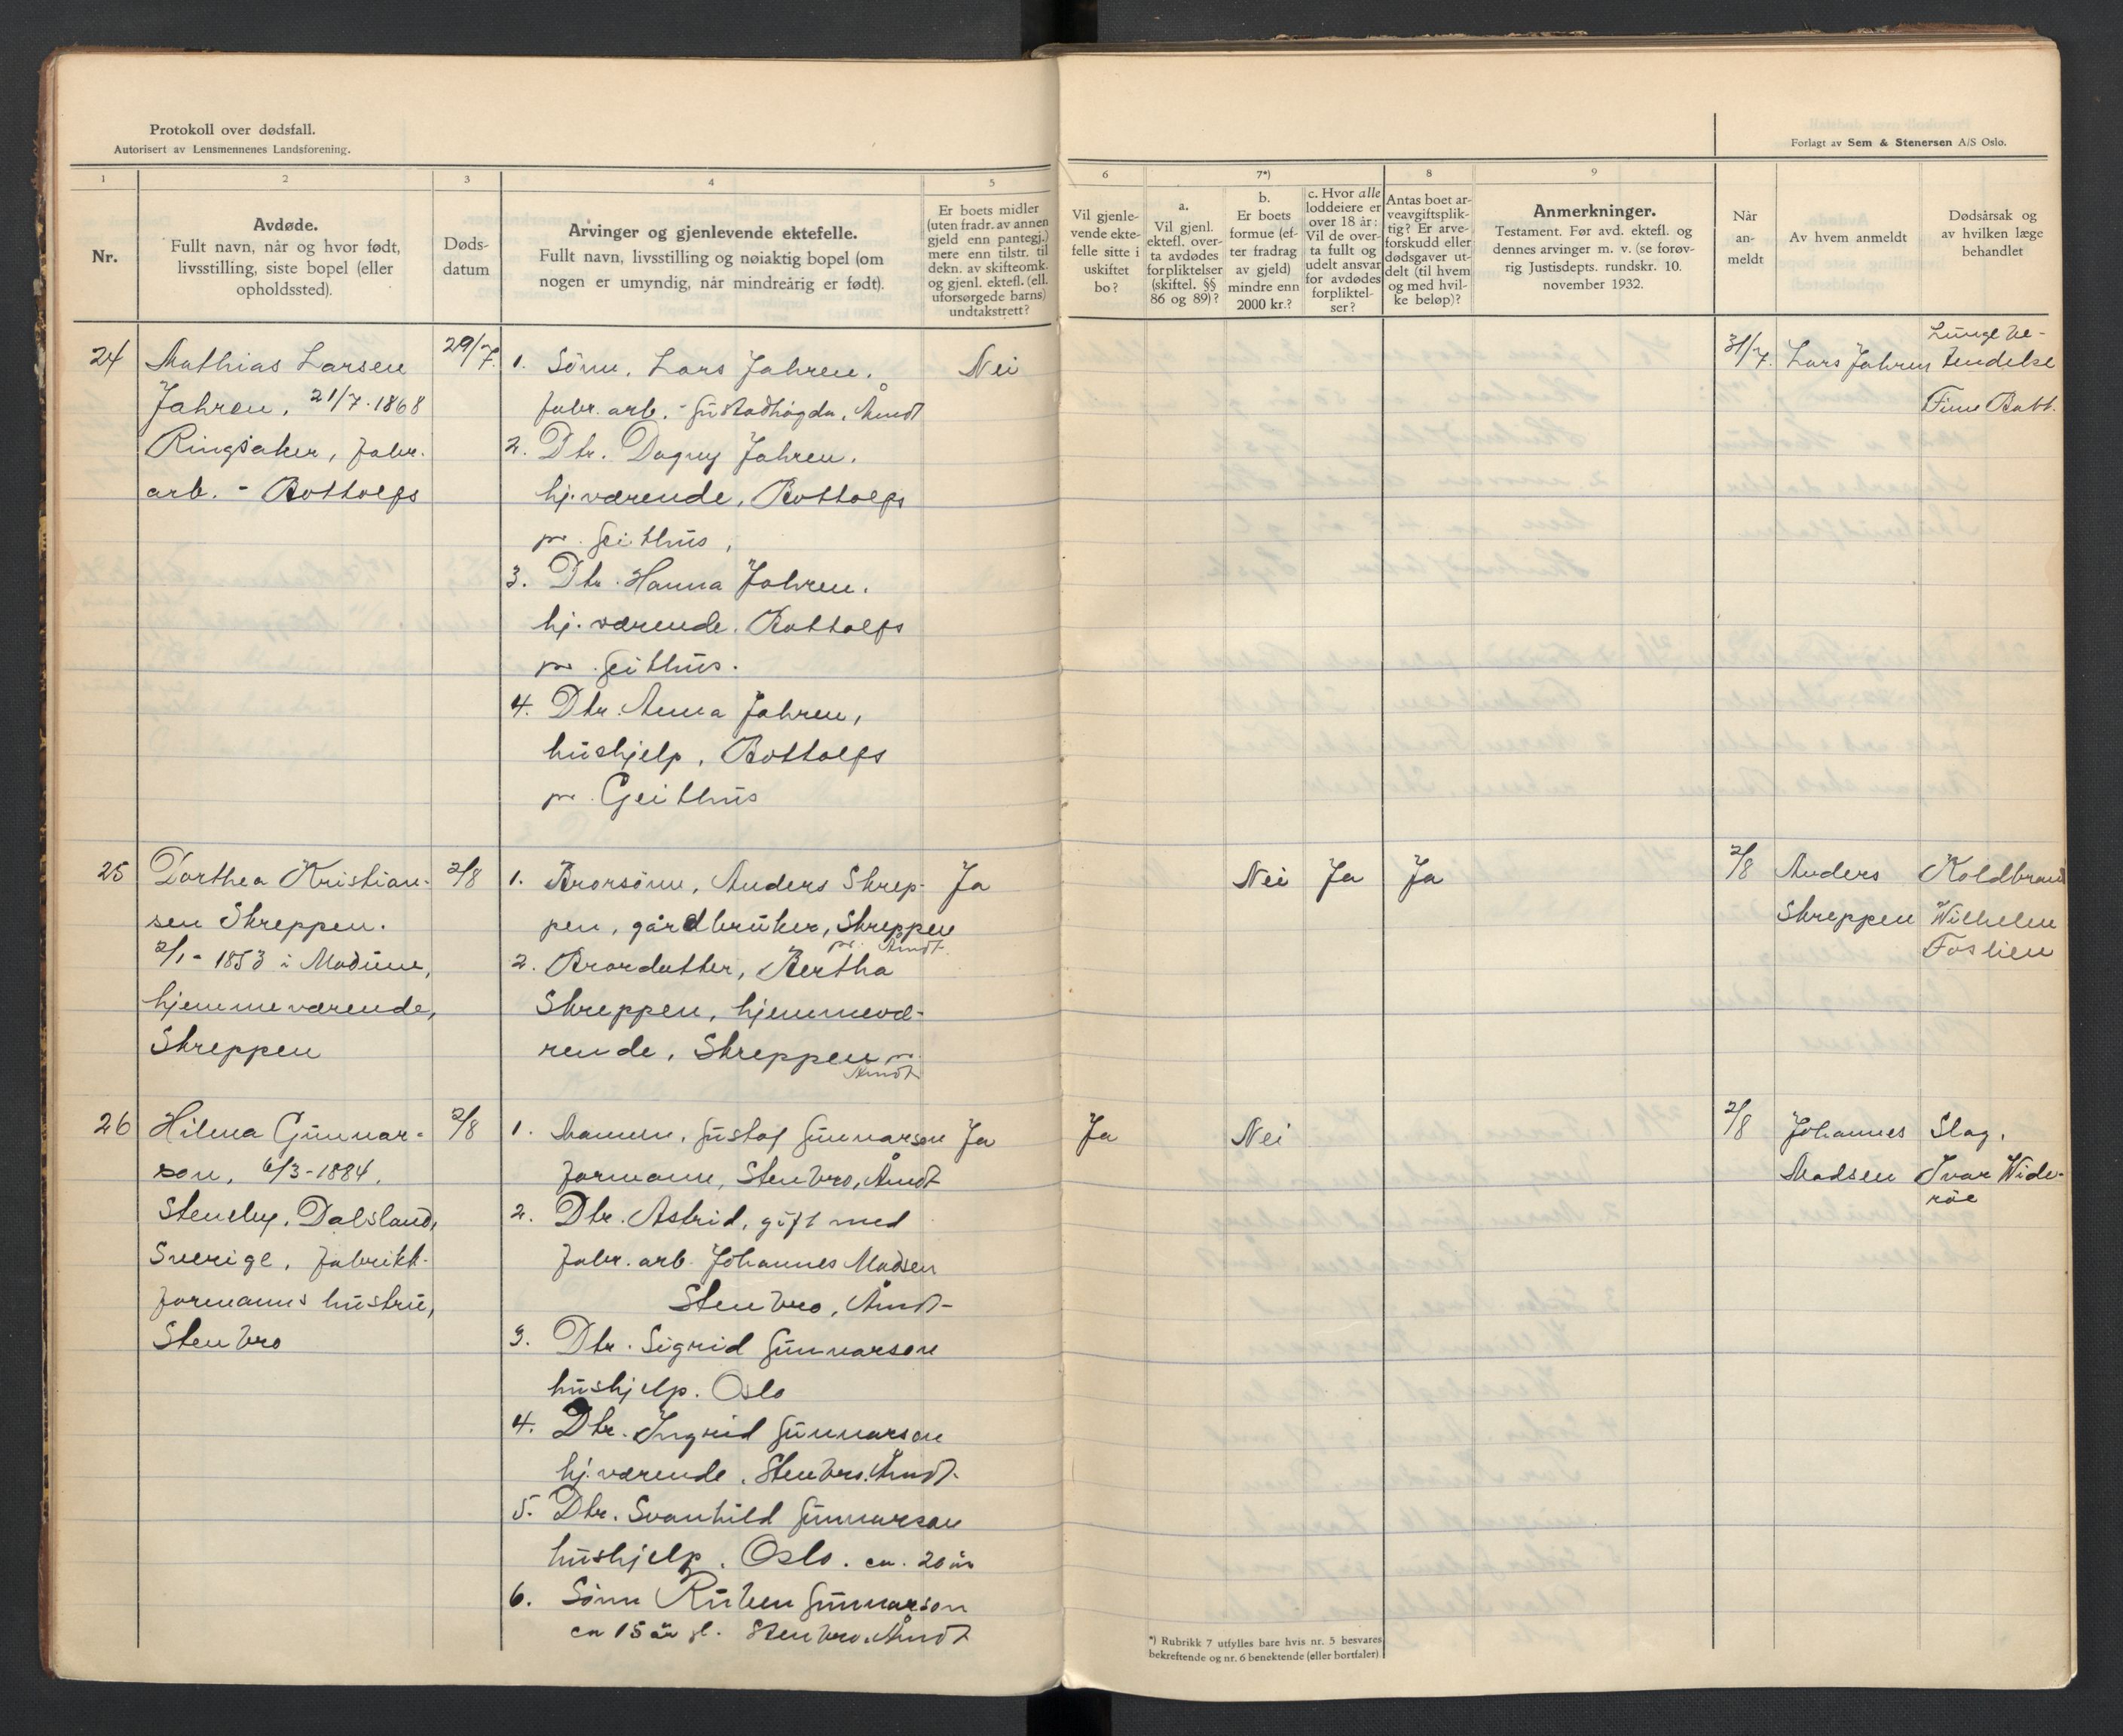 Protokoll over dødsfall.
Autorisert av Lensmennenes Landsforening.
Forlagt av Sem & Stenersen A/S Oslo.
1
2
3
4
5
6
7*)
8
9
Nr.
Avdøde.
Fullt navn, når og hvor født,
livsstilling, siste bopel (eller
opholdssted).
Døds-
datum
Arvinger og gjenlevende ektefelle.
Fullt navn, livsstilling og nøiaktig bopel (om
nogen er umyndig, når mindreårig er født).
Er boets midler
(uten fradr. av annen
gjeld enn pantegj.)
mere enn tilstr. til
dekn. av skifteomk.
og gjenl. ektefl. (ell.
uforsørgede barns)
undtakstrett?
Vil gjenle-
vende ekte-
felle sitte i
uskiftet
bo?
a.
Vil gjenl.
ektefl. over-
ta avdødes
forpliktelser
(skiftel. §§
86 og 89)?
b.
Er boets
formue (ef-
ter fradrag
av gjeld)
mindre enn
2000 kr.?
c. Hvor alle
loddeiere er
over 18 år:
Vil de over-
ta fullt og
udelt ansvar
for avdødes
forpliktel-
ser?
Antas boet ar-
veavgiftsplik-
tig? Er arve-
forskudd eller
dødsgaver ut-
delt (til hvem
og med hvil-
ke beløp)?
Anmerkninger.
Testament. Før avd. ektefl. og
dennes arvinger m. v. (se forøv-
rig Justisdepts. rundskr. 10.
november 1932.
Når
an-
meldt
Av hvem anmeldt
Dødsårsak og
av hvilken læge
behandlet
24
Mathias Larsen
Jahren, 21/7-1868
Ringsaker, fabr.
arb. - Bottolfs
29/7.
1. Sønn, Lars Jahren.
fabr. arb. - Gustadhøgda, Åmot
2. Dtr. Dagny Jahren.
hj. værende, Bottolfs
pr. Geithus,
3. Dtr. Hanna Jahren.
hj. værende. Bottolfs
pr. Geithus.
4. Dtr. Anna Jahren,
hushjelp, Bottolfs
pr. Geithus
Nei
31/7.
Lars Jahren
Lunge be-
tendelse
Finn
25
Dorthea Kristian-
sen Skreppen.
2/1-1853 i Modum,
hjemmeværende,
Skreppen
2/8
1. Brorsønn, Anders Skrep-
pen, gårdbruker, Skreppen
pr. Åmot
2. Brordatter, Bertha
Skreppen, hjemmevæ-
rende, Skreppen pr.
Åmot
Ja
Nei
Ja
Ja
2/8
Anders
Skreppen
Koldbrand
Wilhelm
Foslien
26
Hilma Gunnar-
son, 6/3-1884.
Steneby, Dalsland,
Sverige, fabrikk-
formanns hustru,
Stenbro
2/8
1. Mannen, Gustaf Gunnarson
formann, Stenbro, Åmot
2. Dtr. Astrid, gift med
fabr. arb. Johannes Madsen
Stenbro, Åmot
3. Dtr. Sigrid Gunnarson
hushjelp. Oslo
4. Dtr. Ingrid Gunnarson
hj. værende. Stenbro. Åmot.
5. Dtr. Svanhild Gunnarson
hushjelp. Oslo. ca. 20 år
6. Sønn Ruben Gunnarson
ca 15 år gl. Stenbro. Åmot
Ja
Ja
Nei
2/8
Johannes
Madsen
Slag.
Ivar Wide-
røe
*) Rubrikk 7 utfylles bare hvis nr. 5 besvares
bekreftende og nr. 6 benektende (eller bortfaler).